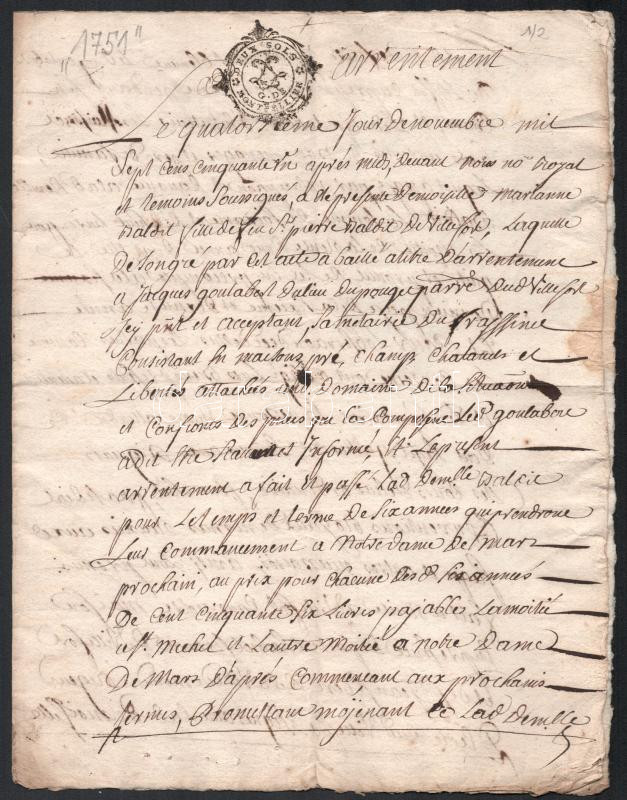 "1751"
1/2
DEUX SOLS
G. DE
MONTPELLIER
arrentement
Le quatorzieme jour de novembre mil
Sept cens cinquante un après midy, devant nous no.re Royal
et temoins soussignes, a été presente Demoiselle marianne
fille de feu Sr. pierre de villefort, Laquelle
De son gre par cet acte a baillé a titre D'arrentement
a jacques goulabert du lieu du pouget parre. dud villefort
Icy pnt et acceptant, Sa metairie du frassinet
Consistant en maisons, pré, champs, chatanets et
Libertés attachés aud. Domaine de la
et confrons des pieces qui la composent Led. goulabert
a dit etre et Informé, et Le present
arrentement a fait et passé Lad. demlle
pour Le temps et terme de six années qui prendront
Leur commancement a Notre dame de mars
prochain, au prix pour chacune desd. six années
De cent cinquante six Livres payables La moitié
a St. michel et L'autre Moitié a notre Dame
De Mars D'après commencant aux prochains
termes, Promettant moyenant ce Lad. demlle